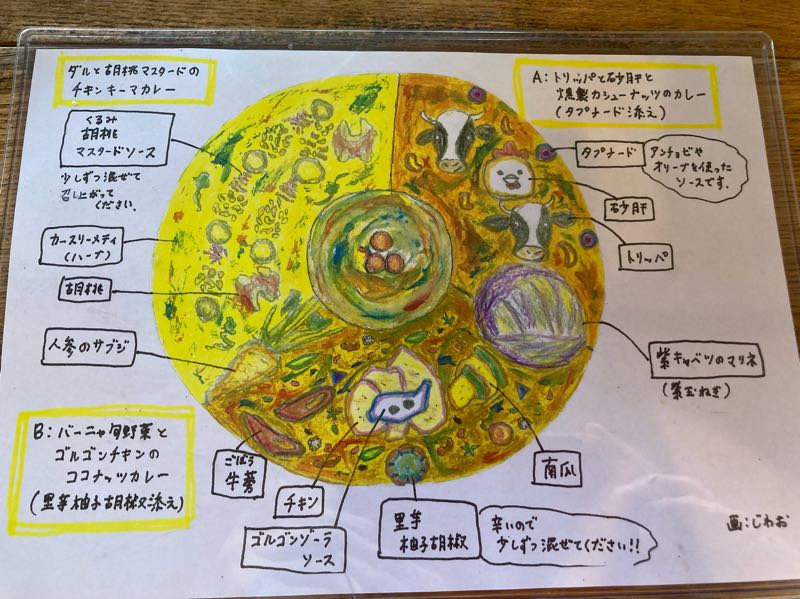 ダルと胡桃マスタードの
チキンキーマカレー
くるみ
胡桃
マスタードソース
少しずつ混ぜて
召し上がって
ください。
カースリーメティ
(ハーブ)
胡桃
人参のサブジ
B:バーニャ旬野菜と
ゴルゴンチキンの
ココナッツカレー
(里芋柚子胡椒添え)
A:トリッパと砂肝と
燻製カシューナッツのカレー
(タプナード添え)
タプナード
アンチョビや
オリーブを使った
ソースです。
砂肝
トリッパ
紫キャベツのマリネ
(紫玉ねぎ)
ごぼう
牛蒡
チキン
ゴルゴンゾーラ
ソース
里芋
柚子胡椒
辛いので
少しずつ混ぜてください!!
南瓜
画:じわお